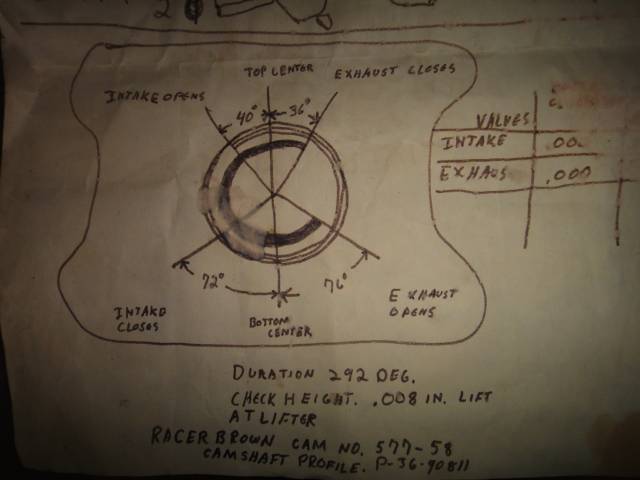 2
TOP CENTER
EXHAUST CLOSES
INTAKE OPENS
40° 36°
VALVES
INTAKE .00
EXHAUS .000
72° 76°
INTAKE
CLOSES
BOTTOM
CENTER
EXHAUST
OPENS
DURATION 292 DEG.
CHECK HEIGHT. .008 IN. LIFT
AT LIFTER
RACER BROWN CAM NO. 577-58
CAMSHAFT PROFILE. P-36-90811